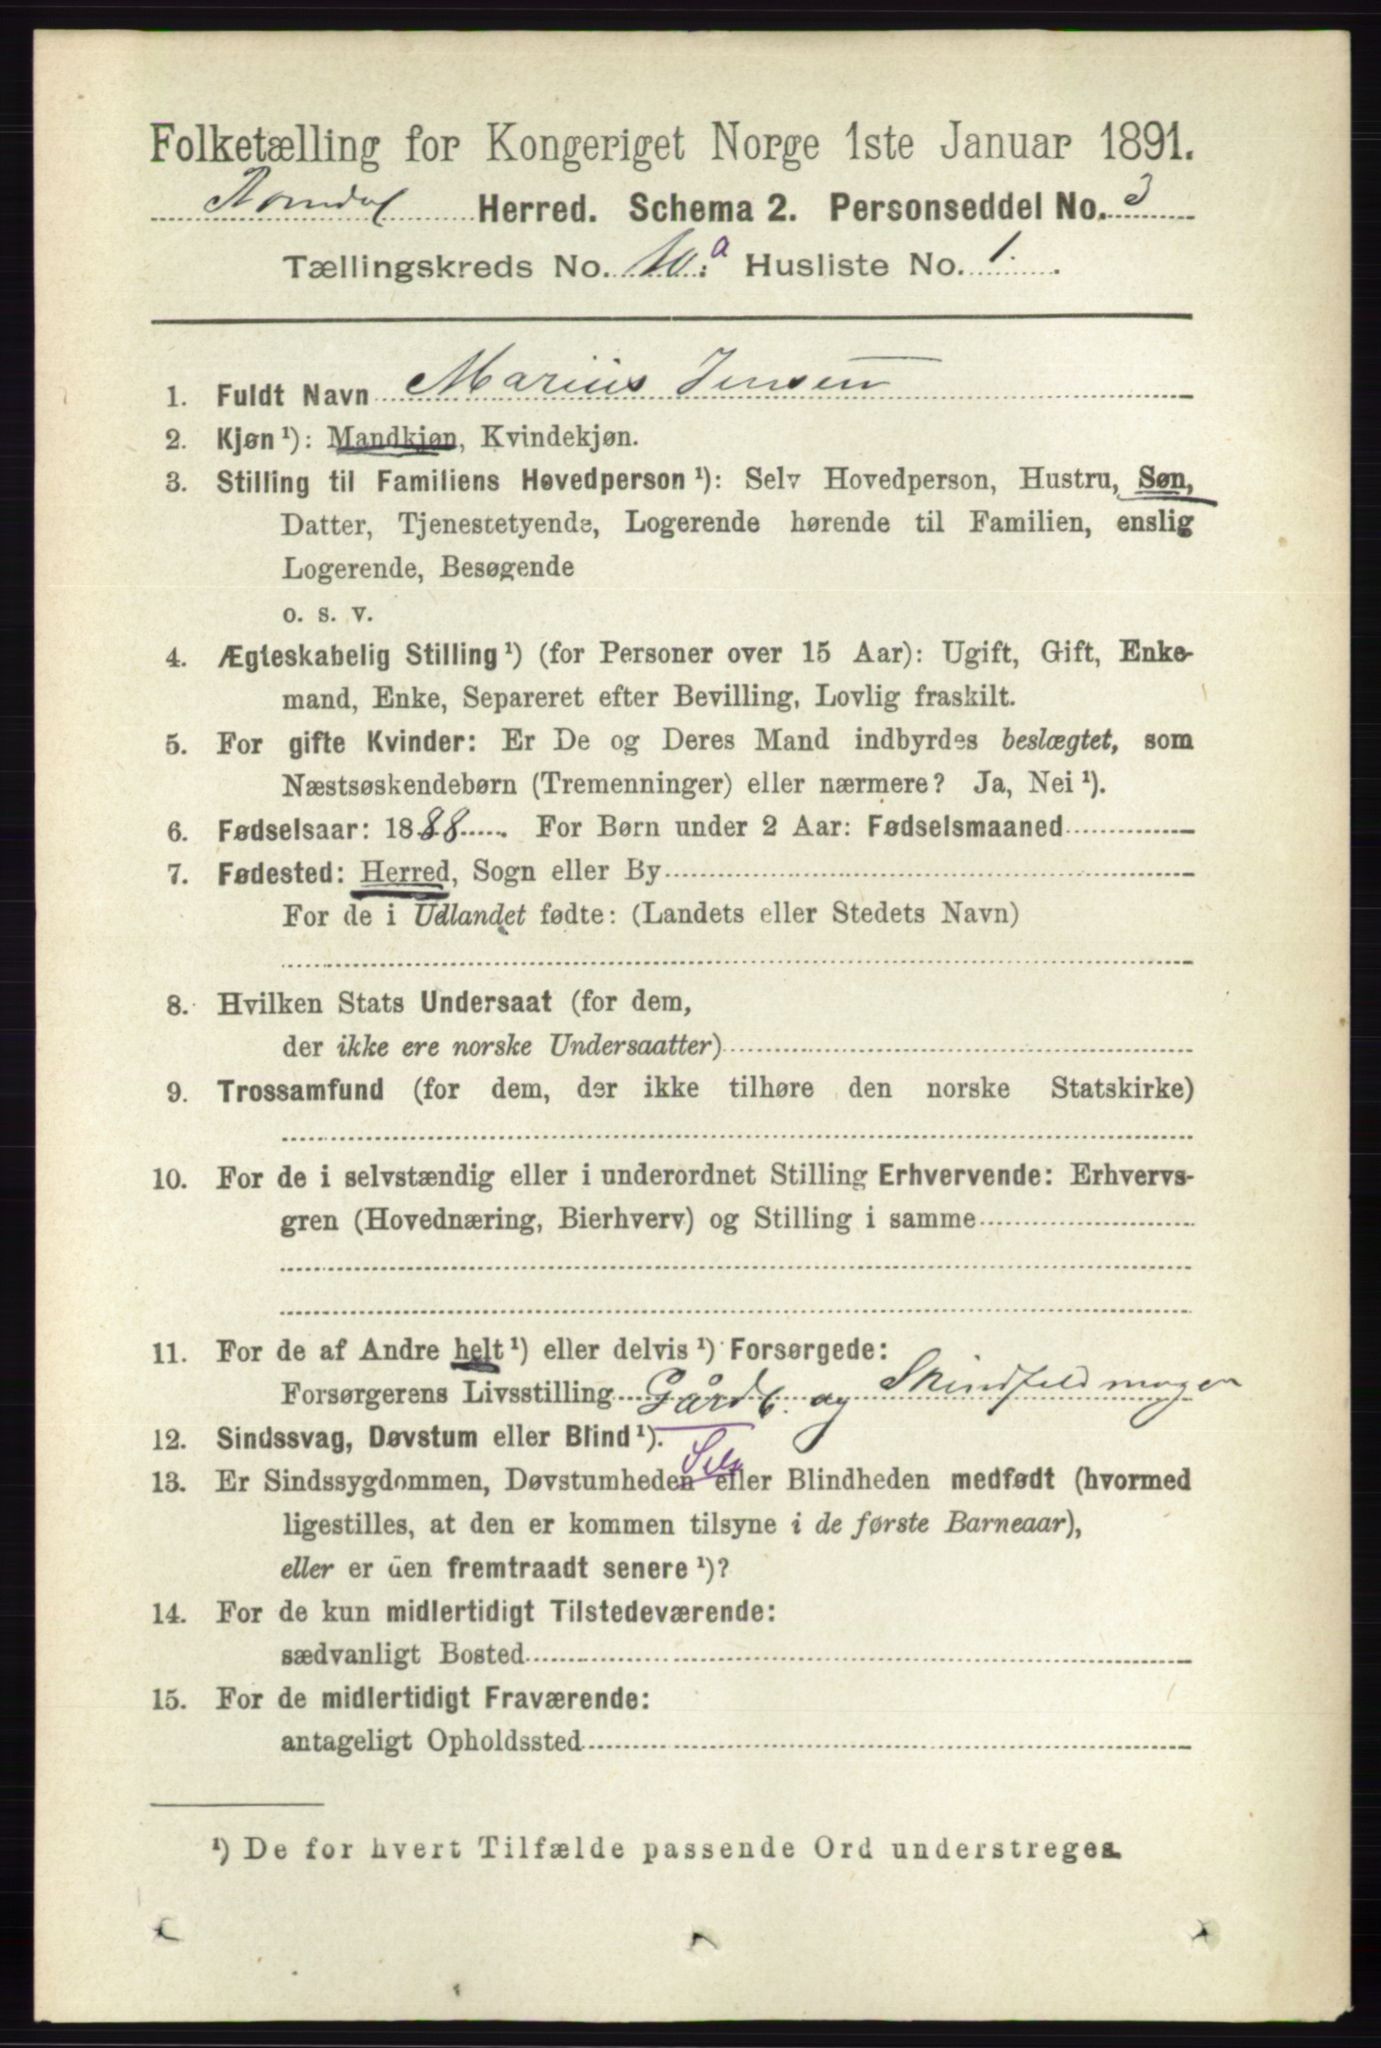 Folketælling for Kongeriget Norge 1ste Januar 1891.
Romdal Herred. Schema 2. Personseddel No. 3
Tællingskreds No. 10.a Husliste No. 1.
1. Fuldt Navn Marius Jensen
2. Kjøn ¹): Mandkjøn, Kvindekjøn.
3. Stilling til Familiens Hovedperson ¹): Selv Hovedperson, Hustru, Søn,
Datter, Tjenestetyende, Logerende hørende til Familien, enslig
Logerende, Besøgende
o. s. v.
4. Ægteskabelig Stilling ¹) (for Personer over 15 Aar): Ugift, Gift, Enke-
mand, Enke, Separeret efter Bevilling, Lovlig fraskilt.
5. For gifte Kvinder: Er De og Deres Mand indbyrdes beslægtet, som
Næstsøskendebørn (Tremenninger) eller nærmere? Ja, Nei ¹).
6. Fødselsaar: 1888. For Børn under 2 Aar: Fødselsmaaned
7. Fødested: Herred, Sogn eller By
For de i Udlandet fødte: (Landets eller Stedets Navn)
8. Hvilken Stats Undersaat (for dem,
der ikke ere norske Undersaatter)
9. Trossamfund (for dem, der ikke tilhøre den norske Statskirke)
10. For de i selvstændig eller i underordnet Stilling Erhvervende: Erhvervs-
gren (Hovednæring, Bierhverv) og Stilling i samme
11. For de af Andre helt ¹) eller delvis ¹) Forsørgede:
Forsørgerens Livsstilling Gårdb. og Skindfeldmager
12. Sindssvag, Døvstum eller Blind ¹).
Selv
13. Er Sindssygdommen, Døvstumheden eller Blindheden medfødt (hvormed
ligestilles, at den er kommen tilsyne i de første Barneaar),
eller er den fremtraadt senere ¹)?
14. For de kun midlertidigt Tilstedeværende:
sædvanligt Bosted
15. For de midlertidigt Fraværende:
antageligt Opholdssted
¹) De for hvert Tilfælde passende Ord understreges.